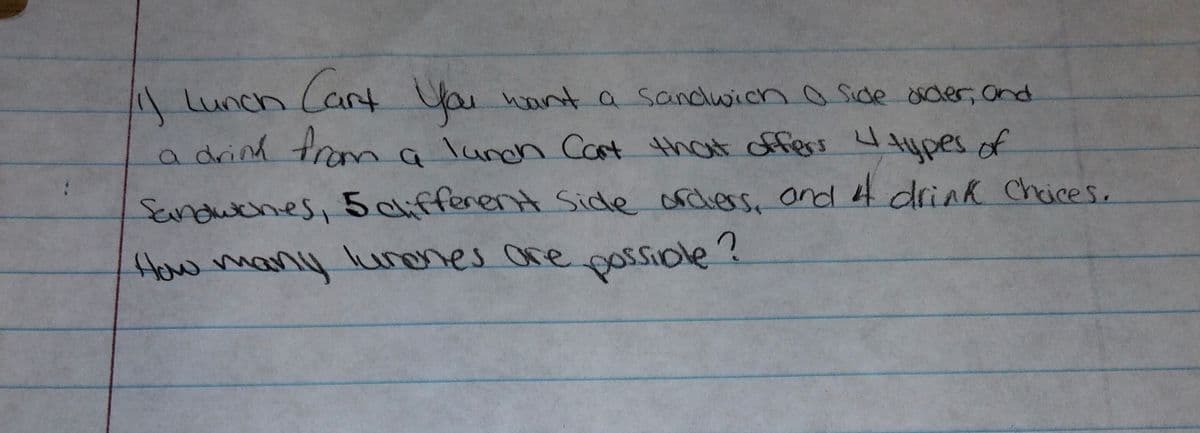 1) Lunch Cart You want a sandwich a side order, and
a drink from a lunch Cart that offers 4 types of
Sandwiches, 5 different Side orders, and 4 drink Choices.
How many lunches are possible?